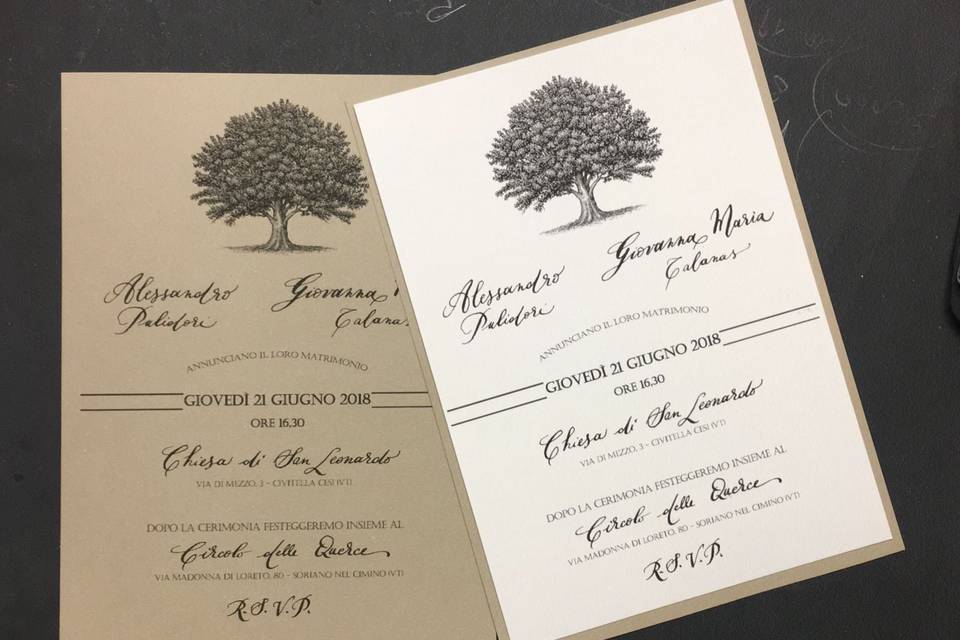 Alessandro
Pulidori
Giovanna
Talanas
ANNUNCIANO IL LORO MATRIMONIO
GIOVEDÌ 21 GIUGNO 2018
ORE 16,30
Chiesa di San Leonardo
VIA DI MEZZO, 3 - CIVITELLA CESI (VT)
DOPO LA CERIMONIA FESTEGGEREMO INSIEME AL
Circolo delle Querce
VIA MADONNA DI LORETO, 80 - SORIANO NEL CIMINO (VT)
R.S.V.P.
Alessandro
Pulidori
Giovanna Maria
Talanas
ANNUNCIANO IL LORO MATRIMONIO
GIOVEDÌ 21 GIUGNO 2018
ORE 16,30
Chiesa di San Leonardo
VIA DI MEZZO, 3 - CIVITELLA CESI (VT)
DOPO LA CERIMONIA FESTEGGEREMO INSIEME AL
Circolo delle Querce
VIA MADONNA DI LORETO, 80 - SORIANO NEL CIMINO (VT)
R.S.V.P.